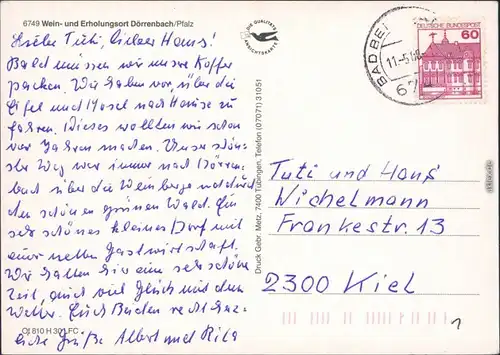 6749 Wein- und Erholungsort Dörrenbach/Pfalz
DIE QUALITÄTS
ANSICHTSKARTE
Liebe Tuti, lieber Hans!
Bald müssen wir unsere Koffer
packen. Wir haben vor, über die
Eifel und Mosel nach Hause zu
fahren. Dieses wollten wir schon
vor Jahren machen. Unser schön-
ste Weg war immer nach Dörren-
bach über die Weinberge und durch
den schönen grünen Wald. Ein
sehr schönes kleines Dorf mit
einer netten Gastwirtschaft.
Wir hatten hier eine sehr schöne
Zeit, auch viel Glück mit dem
Wetter. Euch Beiden recht herz-
liche Grüße Albert und Rita
810 H 301 FC
Druck Gebr. Metz, 7400 Tübingen, Telefon (07071) 31051
BAD BE
11.-5
67
DEUTSCHE BUNDESPOST
60
Tuti und Hans
Wichelmann
Frankestr. 13
2300 Kiel
1